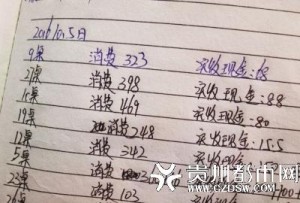 2016.10.5日
9桌 消费 323 实收现金:18
27桌 消费 398 实收现金:88
1桌 消费 469 实收现金:80
19桌 消费 248 实收现金:15.5
12桌 消费 342 实收现金
5桌 消费
23桌 消费 103
贵州都市网
WWW.GZDSW.COM